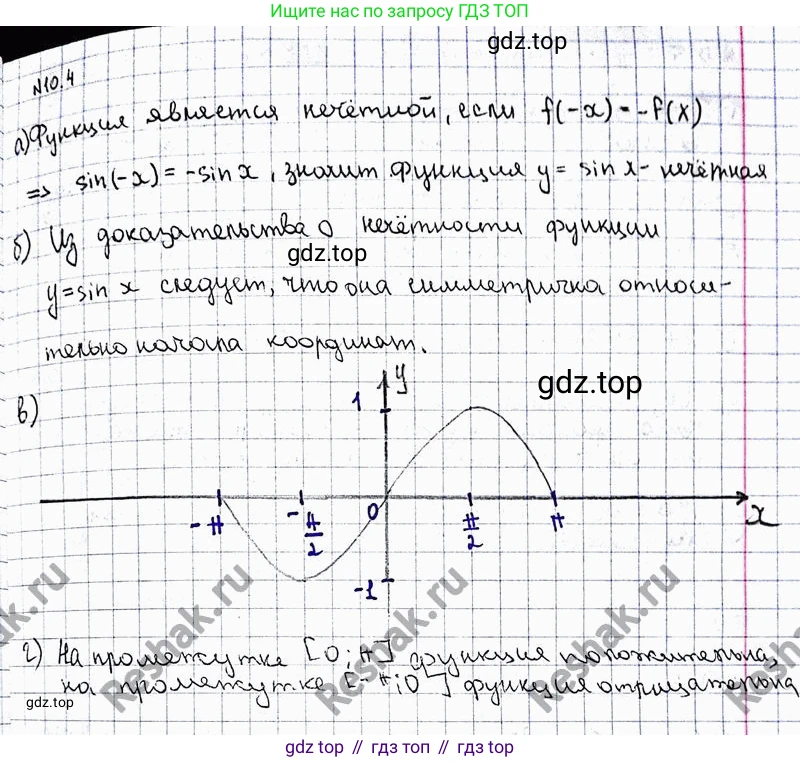 Ищите нас по запросу ГДЗ ТОП
gdz.top
№10.4
а) Функция является нечётной, если f(-x) = -f(x)
=> sin(-x) = -sin x, значит функция y = sin x - нечётная
б) Из доказательства о нечётности функции
gdz.top
y=sin x следует, что она симметрична относи-
тельно начала координат.
в)
y
1
gdz.top
-π
-π/2
0
π/2
π
x
-1
Reshak.ru
Reshak.ru
Reshak.ru
Reshak.ru
г) На промежутке [0; π] функция положительна,
на промежутке [-π; 0] функция отрицательна
gdz.top
gdz.top // гдз топ // gdz.top